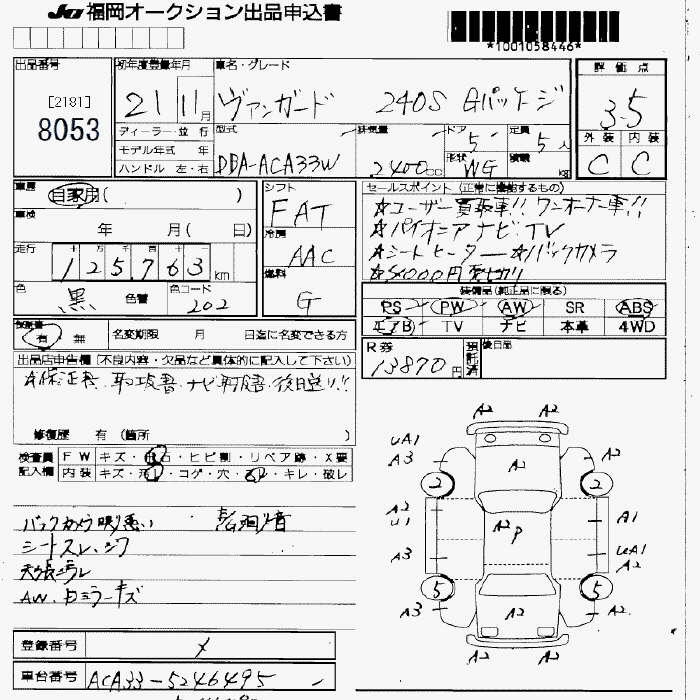 JU 福岡オークション出品申込書
*1001058446*
出品番号 初年度登録年月 車名・グレード 評価点
[2181]
8053
21 11月 ヴァンガード 240S Gパッケージ 3.5
ディーラー・並行 型式 排気量 ドア 定員 外装 内装
モデル年式 年 5 5人
ハンドル 左・右 DBA-ACA33W 2400cc 形状 WG 積載 kg C C
車歴 自家用( ) シフト FAT セールスポイント (正常に機能するもの)
☆ユーザー買取車!! ワンオーナー車!!
車検 年 月( 日) 冷房 AAC ☆パイオニアナビ、TV
走行 十 万 千 百 十 ☆シートヒーター ☆バックカメラ
125,763km 燃料 G
装備品(純正品に限る)
色 黒 色替 色コード 202 PS PW AW SR ABS
エアB TV ナビ 本革 4WD
保証書 有 無 名変期限 月 日迄に名変できる方
R券 13870円 預託済 後日品
出品店申告欄 (不良内容・欠品など具体的に記入して下さい)
☆保証書、取扱書、ナビ取扱書 後日送り!!
修復歴 有 (箇所 )
検査員 FW キズ・飛石・ヒビ割・リペア跡・X要
記入欄 内装 キズ・汚レ・コゲ・穴・スレ・キレ・破レ
バックカメラ映り悪い
シートスレ、シワ
天張ヨゴレ
AW、Dミラーキズ
A2 A2
UA1
A3 A2 A2
2 2
A2
U1 A2 P A1
A3 UA1
A2
5 5
A3 A2 A2
A2 A2
登録番号
車台番号 ACA33-5246495